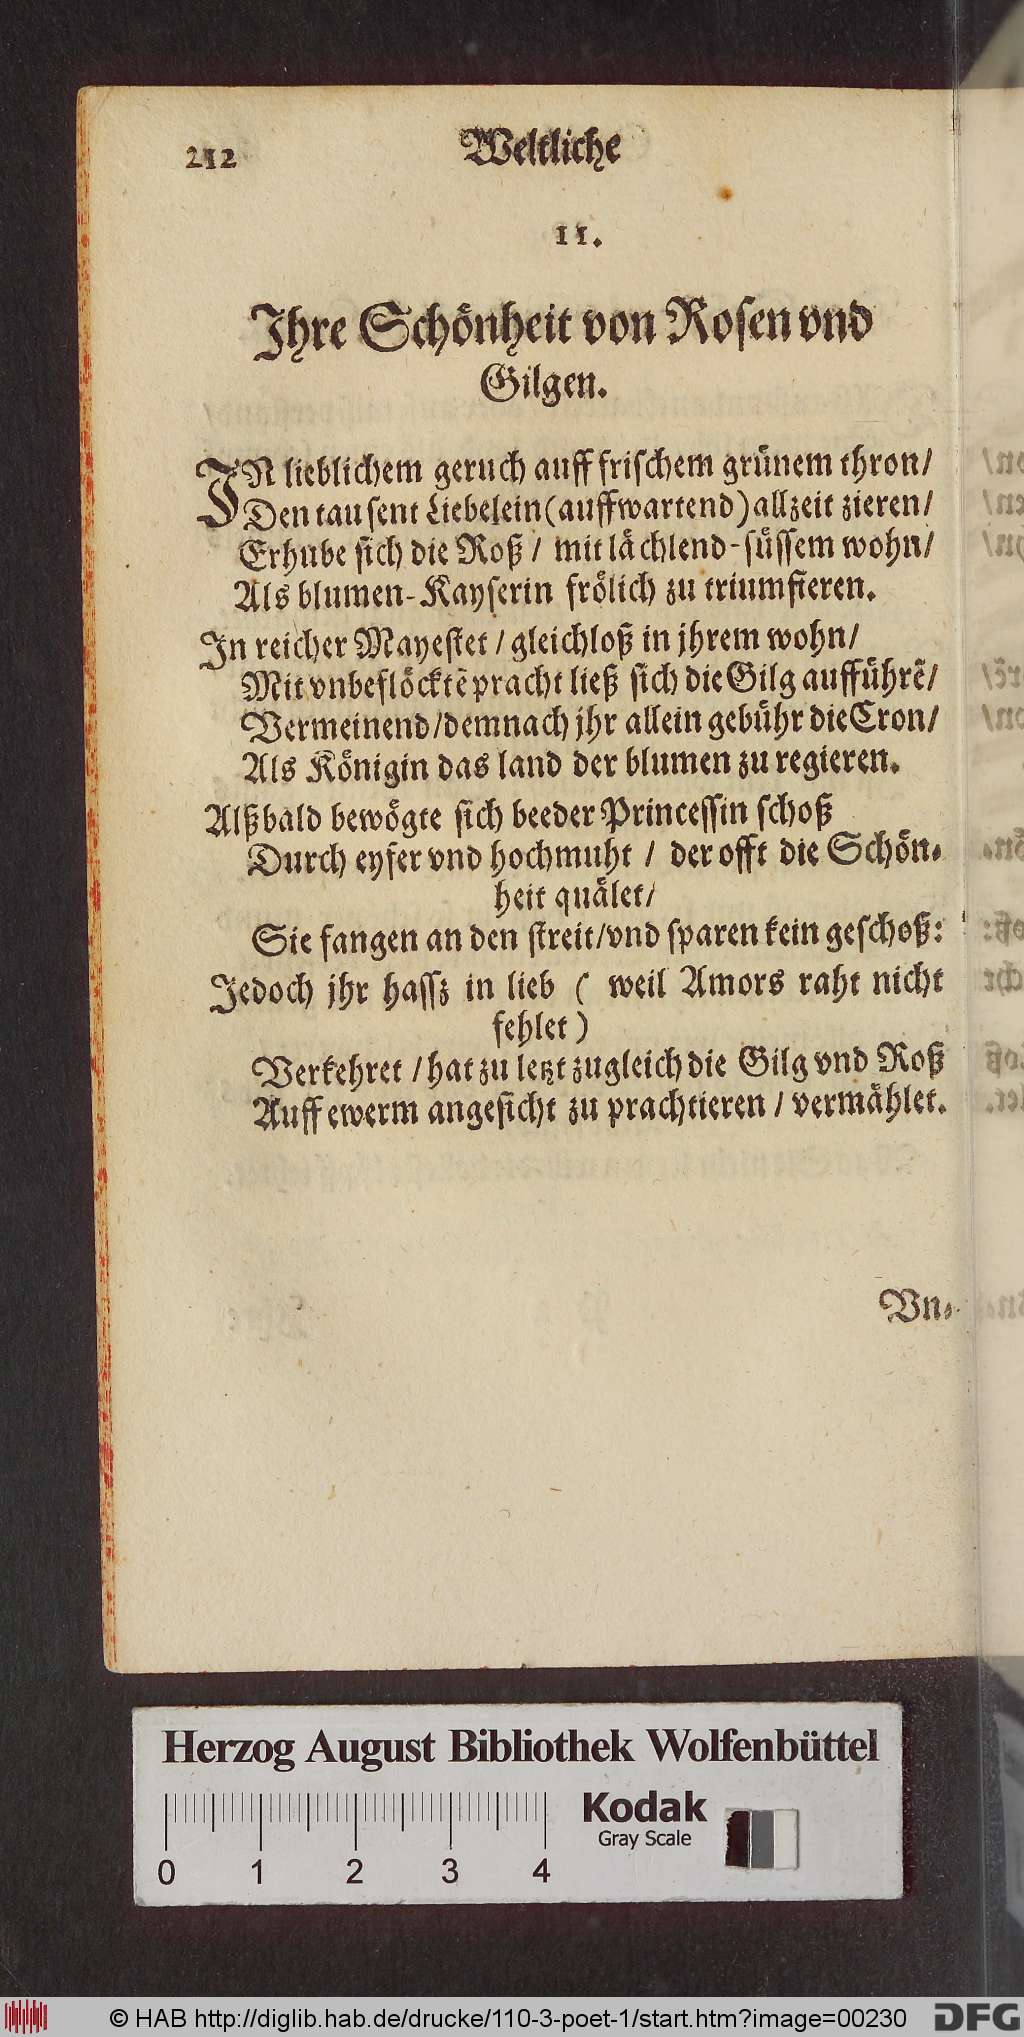 212 Weltliche
11.
Ihre Schönheit von Rosen vnd
Gilgen.
IN lieblichem geruch auff frischem grünem thron/
Den tausent Liebelein (auffwartend) allzeit zieren/
Erhube sich die Roß / mit lächlend-süssem wohn/
Als blumen-Kayserin frölich zu triumfieren.
In reicher Mayestet / gleichloß in jhrem wohn/
Mit vnbeflöcktẽ pracht ließ sich die Gilg aufführẽ/
Vermeinend/demnach jhr allein gebühr die Cron/
Als Königin das land der blumen zu regieren.
Alßbald bewögte sich beeder Princessin schoß
Durch eyfer vnd hochmuht / der offt die Schön-
heit quälet/
Sie fangen an den streit/vnd sparen kein geschoß:
Jedoch jhr hassz in lieb ( weil Amors raht nicht
fehlet )
Verkehret / hat zu letzt zugleich die Gilg vnd Roß
Auff ewerm angesicht zu prachtieren / vermählet.
Vn-
Herzog August Bibliothek Wolfenbüttel
Kodak
Gray Scale
0 1 2 3 4
© HAB http://diglib.hab.de/drucke/110-3-poet-1/start.htm?image=00230 DFG